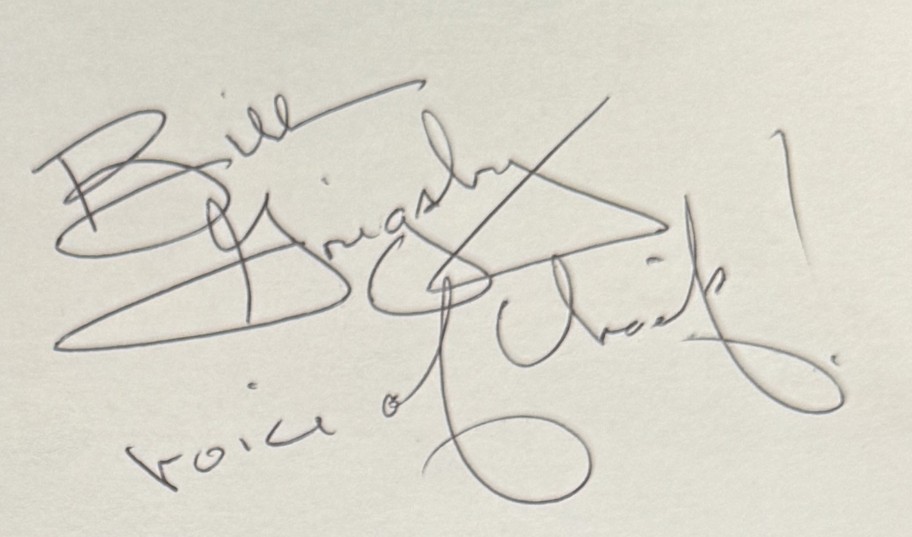 Bill
Grigsby
voice of Chiefs!